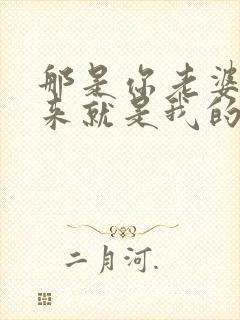 那是你老婆
来就是我的
二月河.